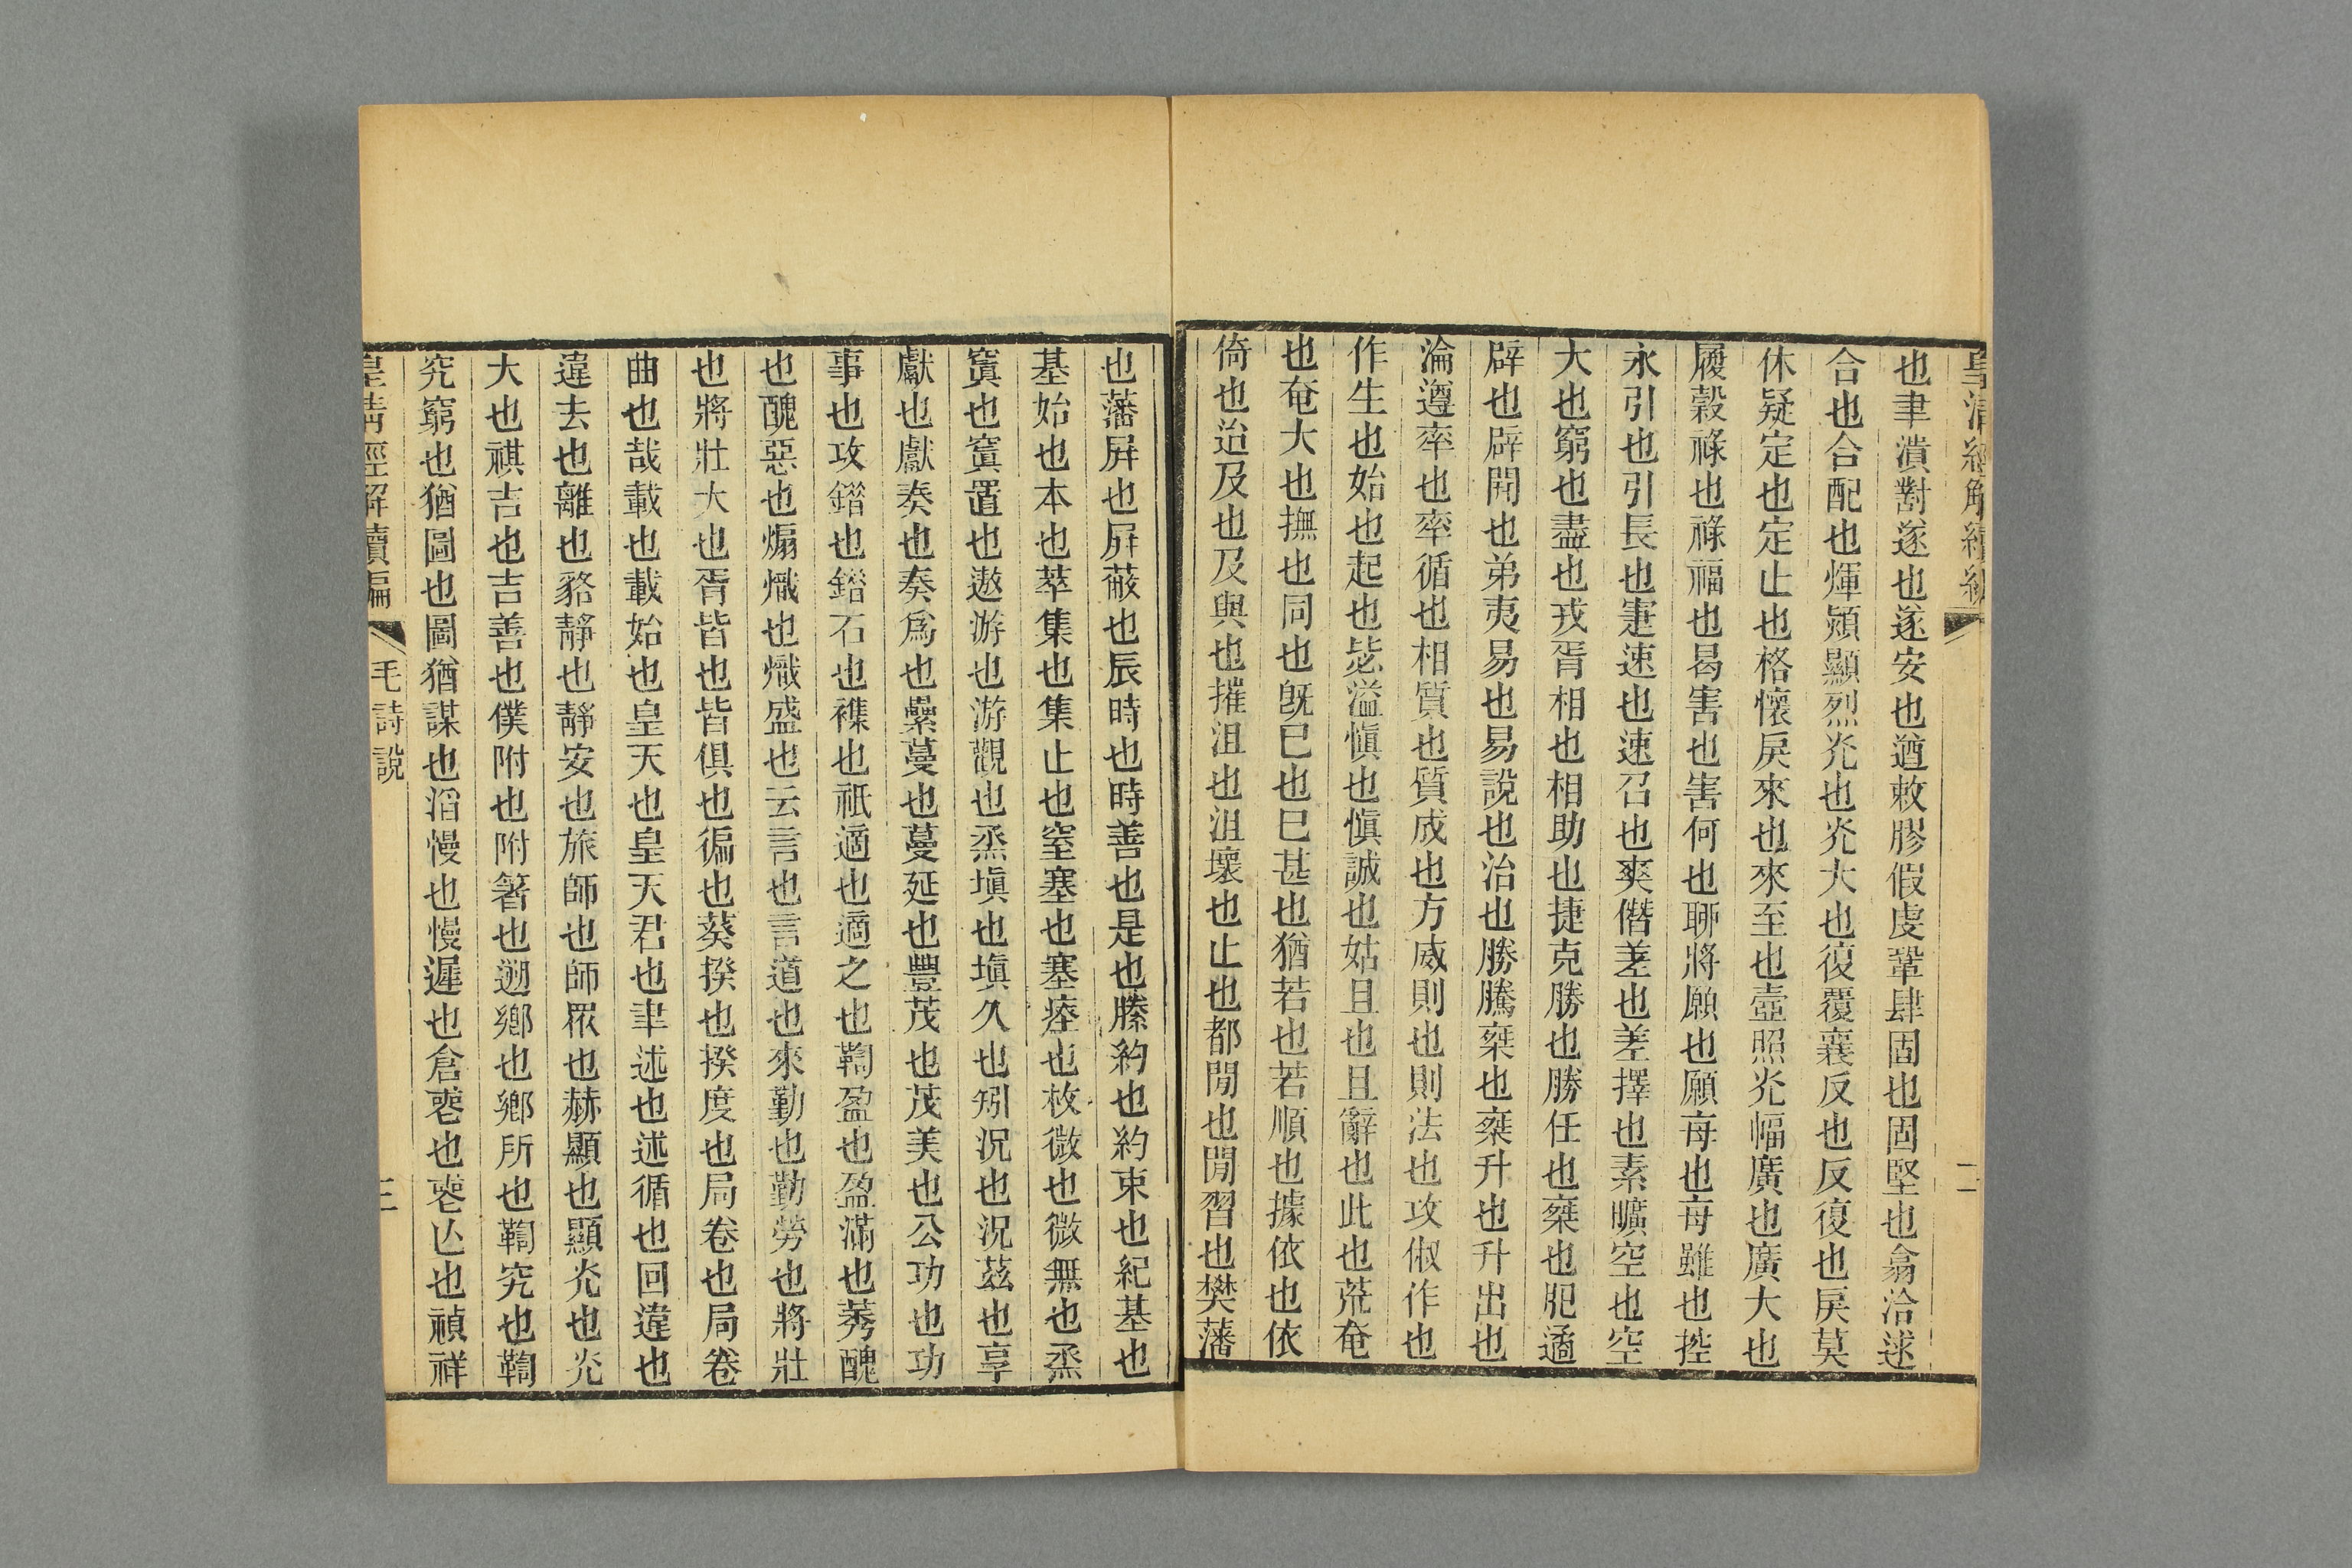 皇清經解續編
二
也聿潰對遂也遂安也遒敕膠假虔鞏肆固也固堅也翕洽逑
合也合配也煇熲顯烈光也光大也復覆襄反也反復也戾莫
休疑定也定止也格懷戾來也來至也壼照光幅廣也廣大也
履穀祿也祿福也曷害也害何也聊將願也願每也每雖也控
永引也引長也疌速也速召也爽僭差也差擇也素曠空也空
大也窮也盡也戎胥相也相助也捷克勝也勝任也椉也肥遹
辟也辟開也弟夷易也易說也治也勝騰椉也椉升也升出也
淪遵率也率循也相質也質成也方威則也則法也攻俶作也
作生也始也起也毖溢愼也愼誠也姑且也且辭也此也荒奄
也奄大也撫也同也旣已也已甚也猶若也若順也據依也依
倚也迨及也及與也摧沮也沮壞也止也都閒也閒習也樊藩
也藩屏也屏蔽也辰時也時善也是也縢約也約束也紀基也
基始也本也萃集也集止也窒塞也塞瘞也枚微也微無也烝
窴也窴置也遨游也游觀也烝塡也塡久也矧況也況茲也享
獻也獻奏也奏爲也纍蔓也蔓延也豐茂也茂美也公功也功
事也攻錯也錯石也襍也祇適也適之也鞫盈也盈滿也莠醜
也醜惡也煽熾也熾盛也云言也言道也來勤也勤勞也將壯
也將壯大也胥皆也皆俱也徧也葵揆也揆度也局卷也局卷
曲也哉載也載始也皇天也皇天君也聿述也述循也回違也
違去也離也貉靜也靜安也旅師也師眾也赫顯也顯光也光
大也祺吉也吉善也僕附也附箸也遡鄉也鄉所也鞫究也鞫
究窮也猶圖也圖猶謀也滔慢也慢遲也倉喪也喪亾也禎祥
皇清經解續編
毛詩說
三